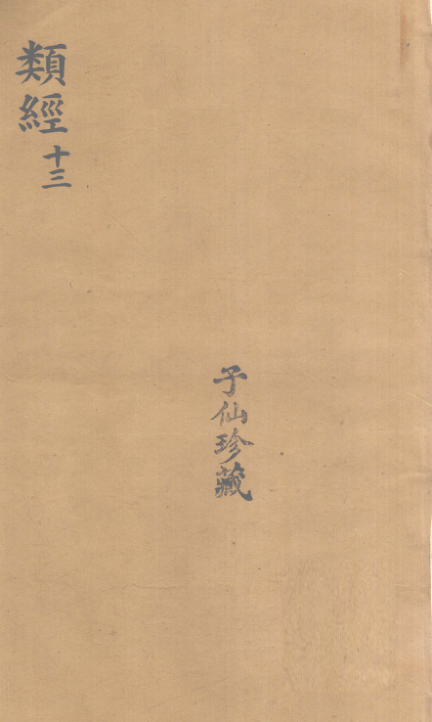 類經十三
子仙珍藏